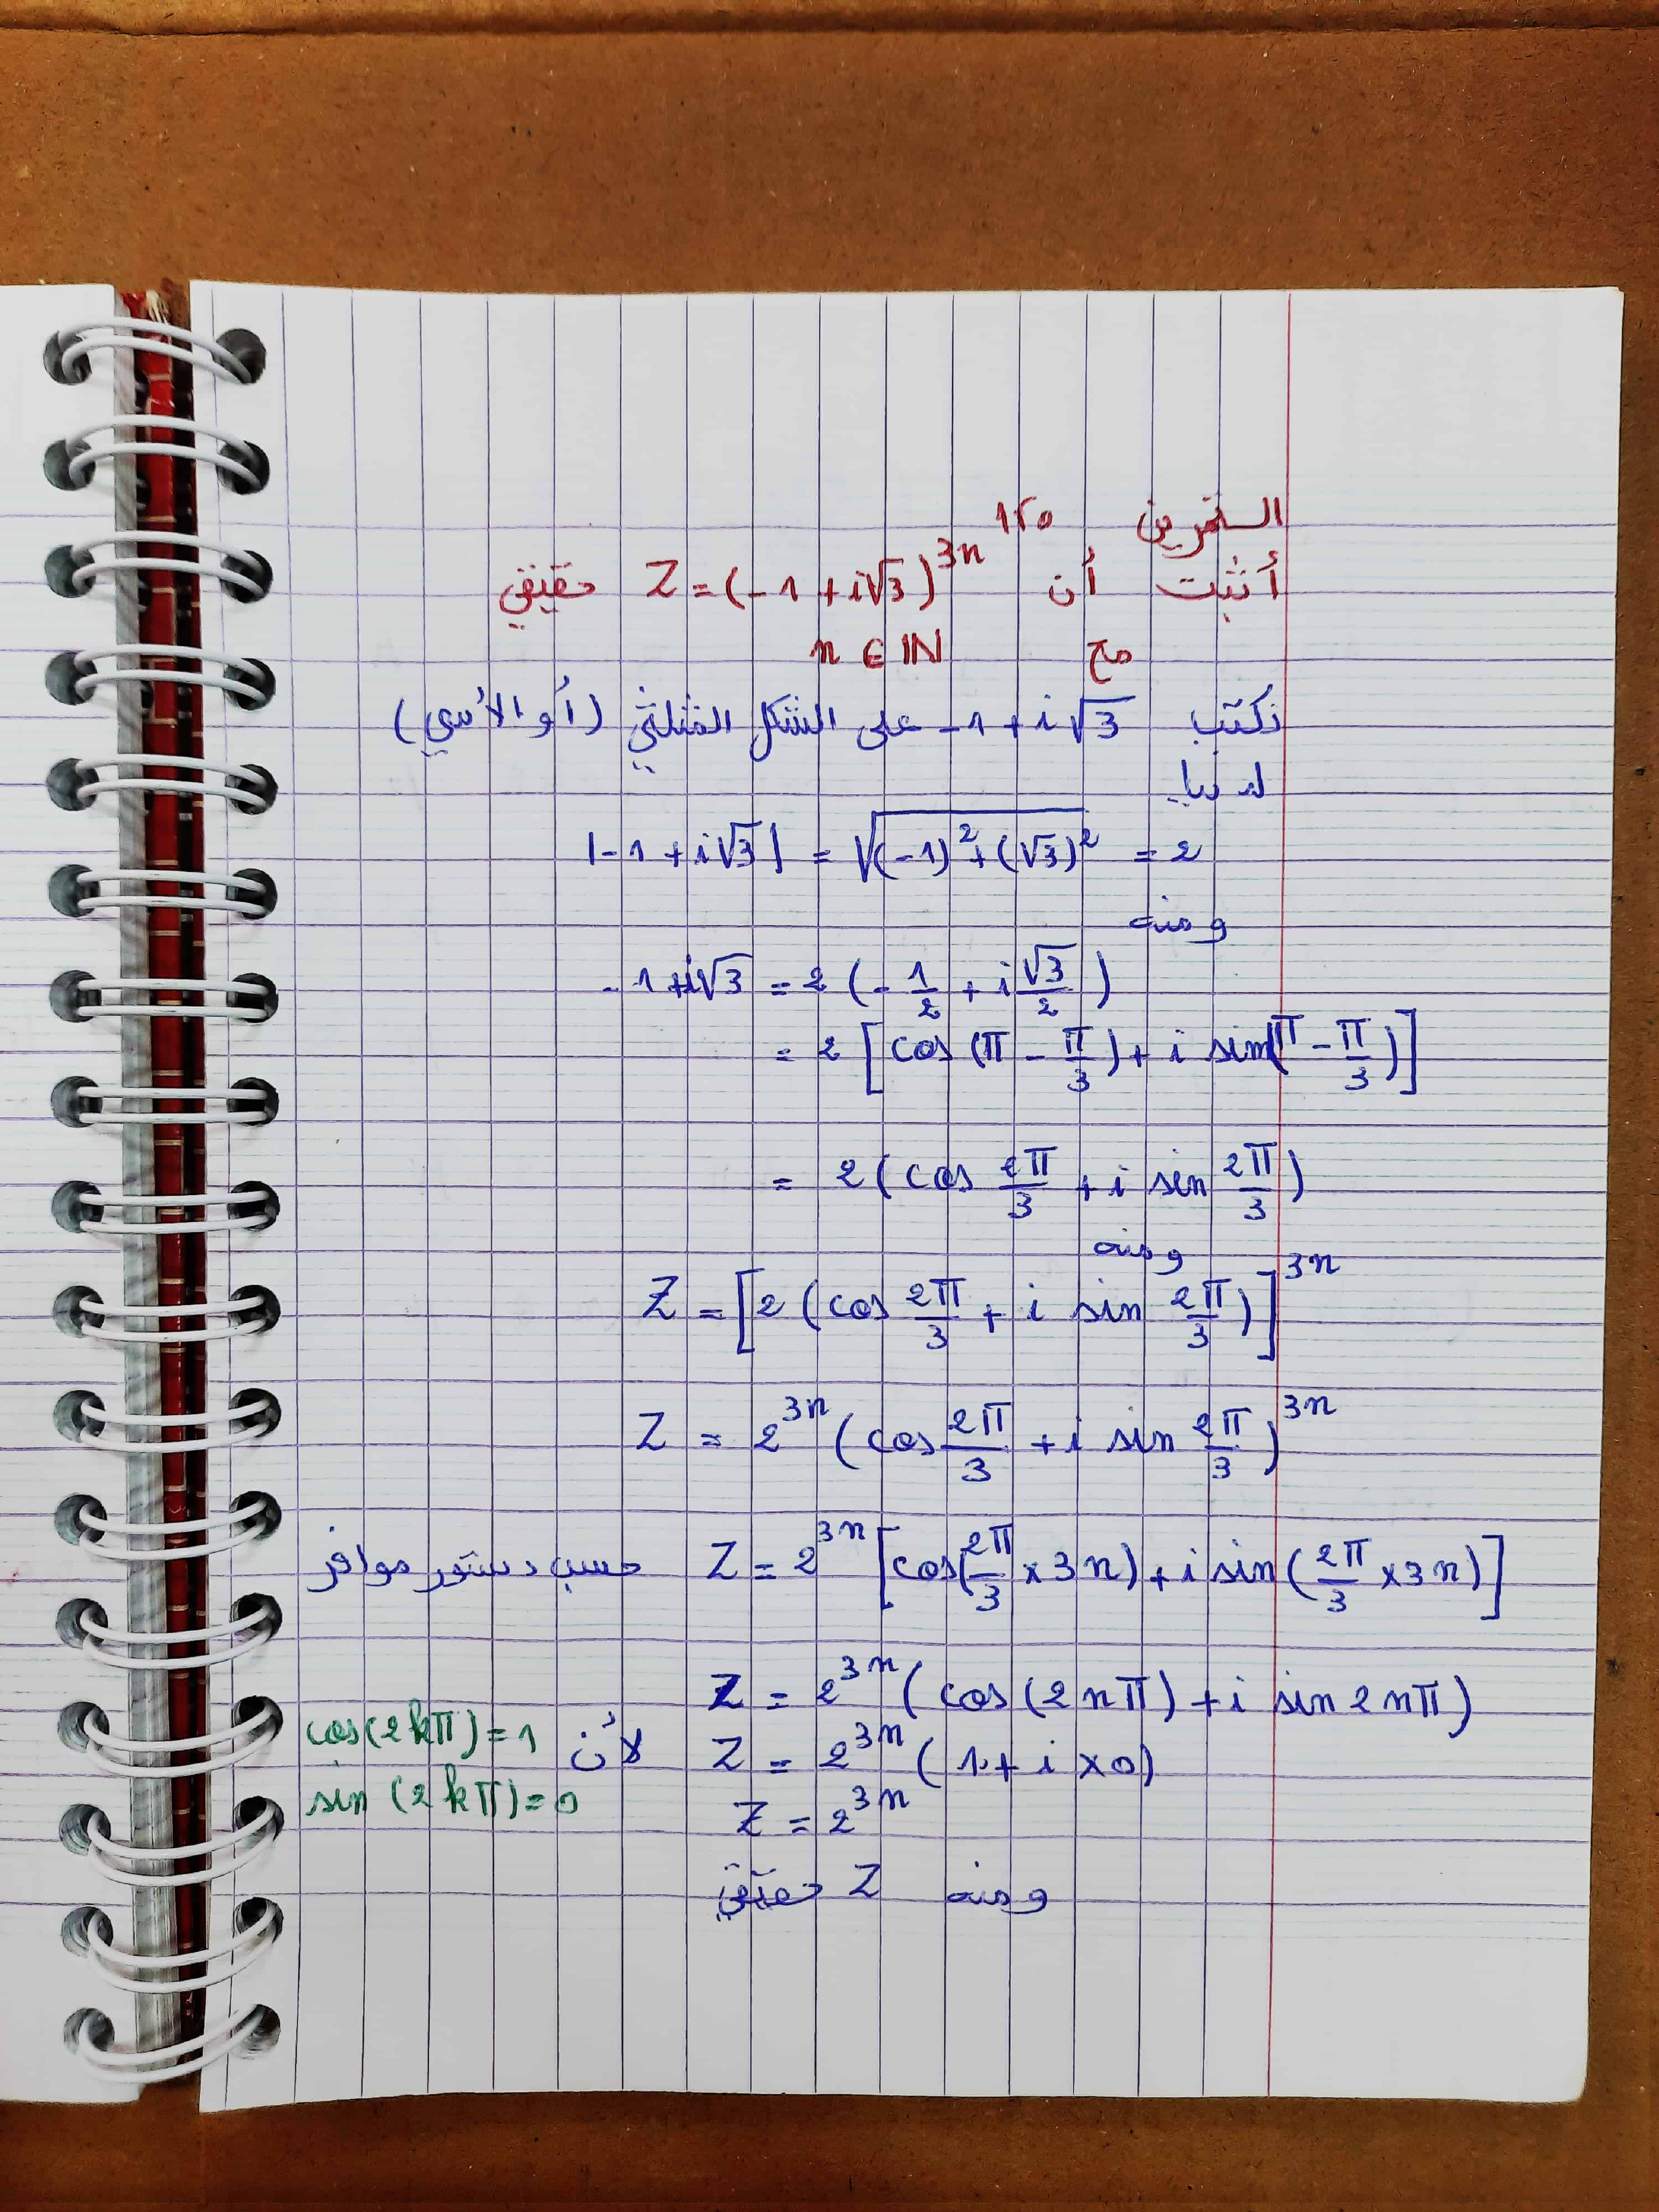 التمرين 125
أثبت أن Z = (-1 + i√3)^3n حقيقي
مع n ∈ IN
نكتب -1 + i√3 على الشكل المثلثي (أو الأسي)
لدينا
|-1 + i√3| = √((-1)² + (√3)²) = 2
ومنه
-1 + i√3 = 2 (-1/2 + i √3/2)
= 2 [cos (π - π/3) + i sin(π - π/3)]
= 2 (cos 2π/3 + i sin 2π/3)
ومنه
Z = [2 (cos 2π/3 + i sin 2π/3)]^3n
Z = 2^3n (cos 2π/3 + i sin 2π/3)^3n
Z = 2^3n [cos(2π/3 × 3n) + i sin (2π/3 × 3n)] حسب دستور موافر
Z = 2^3n (cos (2nπ) + i sin 2nπ)
Z = 2^3n (1 + i × 0) لأن cos(2kπ) = 1
sin (2kπ) = 0
Z = 2^3n
ومنه Z حقيقي